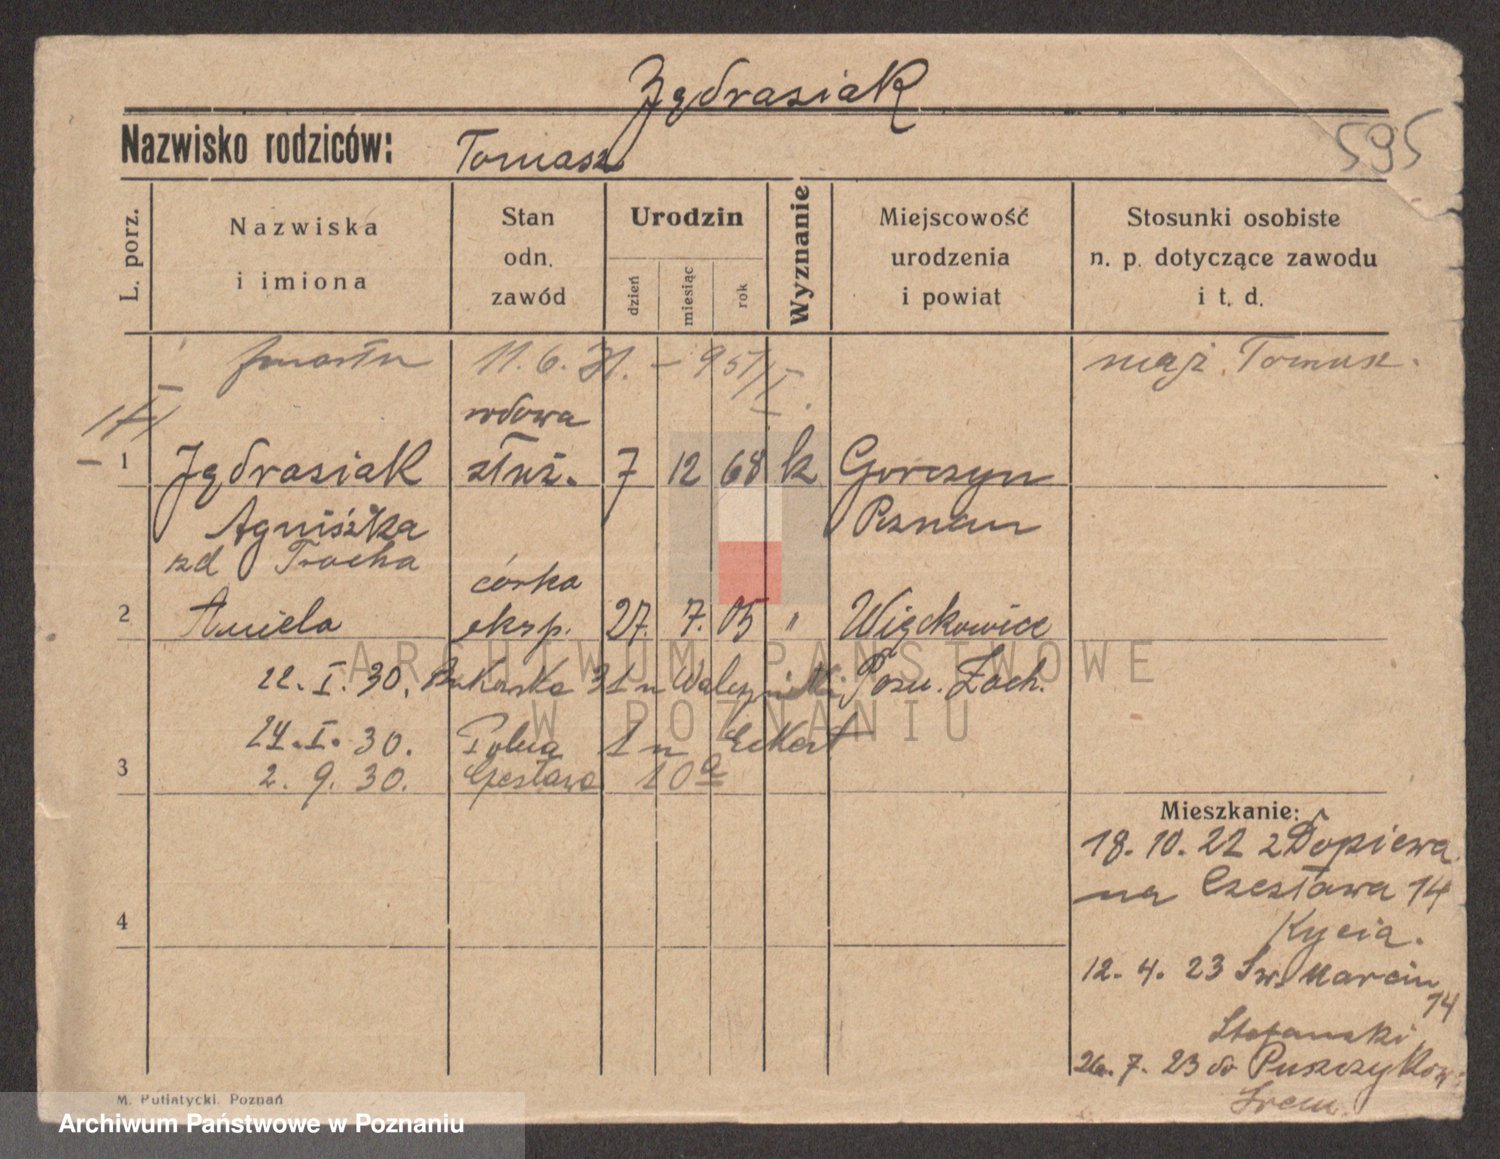 Jędrasiak
Nazwisko rodziców: Tomasz
595
L. porz.
Nazwiska
i imiona
Stan
odn.
zawód
Urodzin
dzień
miesiąc
rok
Wyznanie
Miejscowość
urodzenia
i powiat
Stosunki osobiste
n. p. dotyczące zawodu
i t. d.
zmarła 11. 6. 31. - 951/I. mąż Tomasz.
wdowa
1 Jędrasiak służ. 7 12 68 k Gorczyn
Agniszka Poznan
zd Trocha
córka
2 Aniela eksp. 27. 7. 05 " Więckowice
22. I. 30. Bukowska 31 n Pozn. Zach.
24. I. 30. Polna 1 n Eckert
3 2. 9. 30. Czesława 10a
4
Mieszkanie:
18. 10. 22 z Dopiewa
na Czesława 14
Kycia.
12. 4. 23 Św. Marcin
14
Stefanski
26. 7. 23 do Puszczykow
Śrem.
M. Putiatycki. Poznań
ARCHIWUM PAŃSTWOWE
W POZNANIU
Archiwum Państwowe w Poznaniu